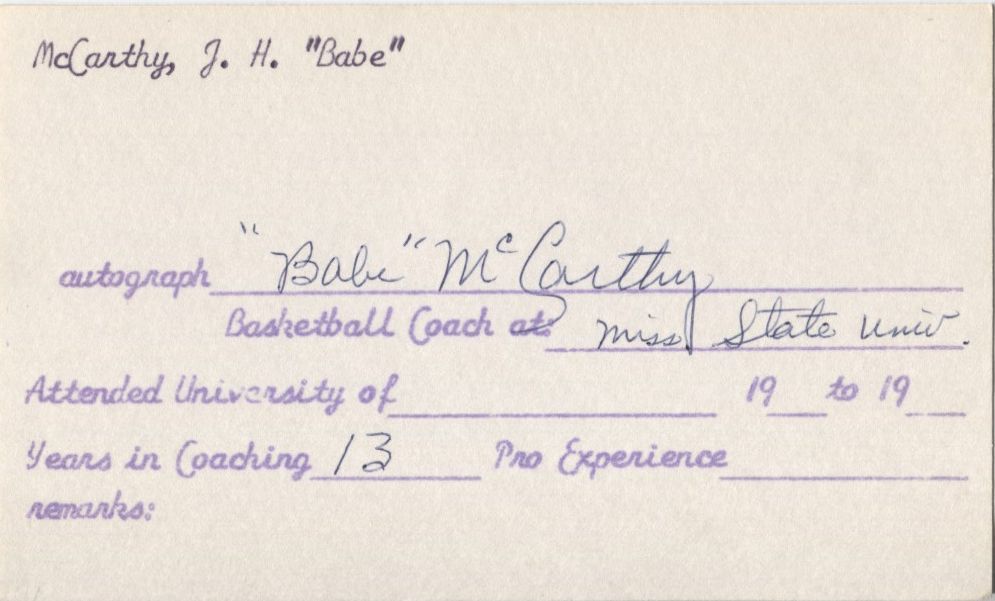 McCarthy, J. H. "Babe"
autograph "Babe" McCarthy
Basketball Coach at: Miss. State Univ.
Attended University of 19 to 19
Years in Coaching 13 Pro Experience
remarks: